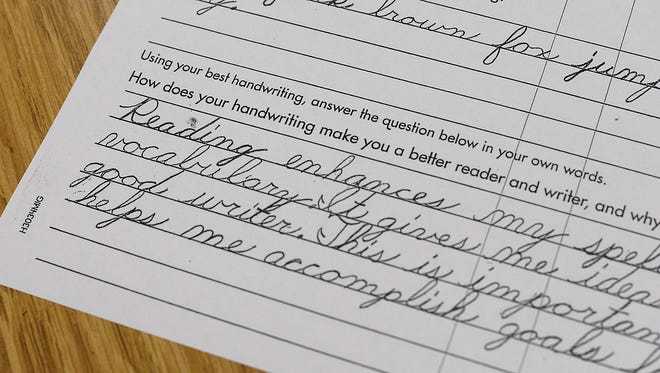 brown fox jump
y.
Using your best handwriting, answer the question below in your own words.
How does your handwriting make you a better reader and writer, and why
Reading enhances my spel
vocabulary. It gives me ideas
good writer. This is importan
helps me accomplish goals
H3034MKG